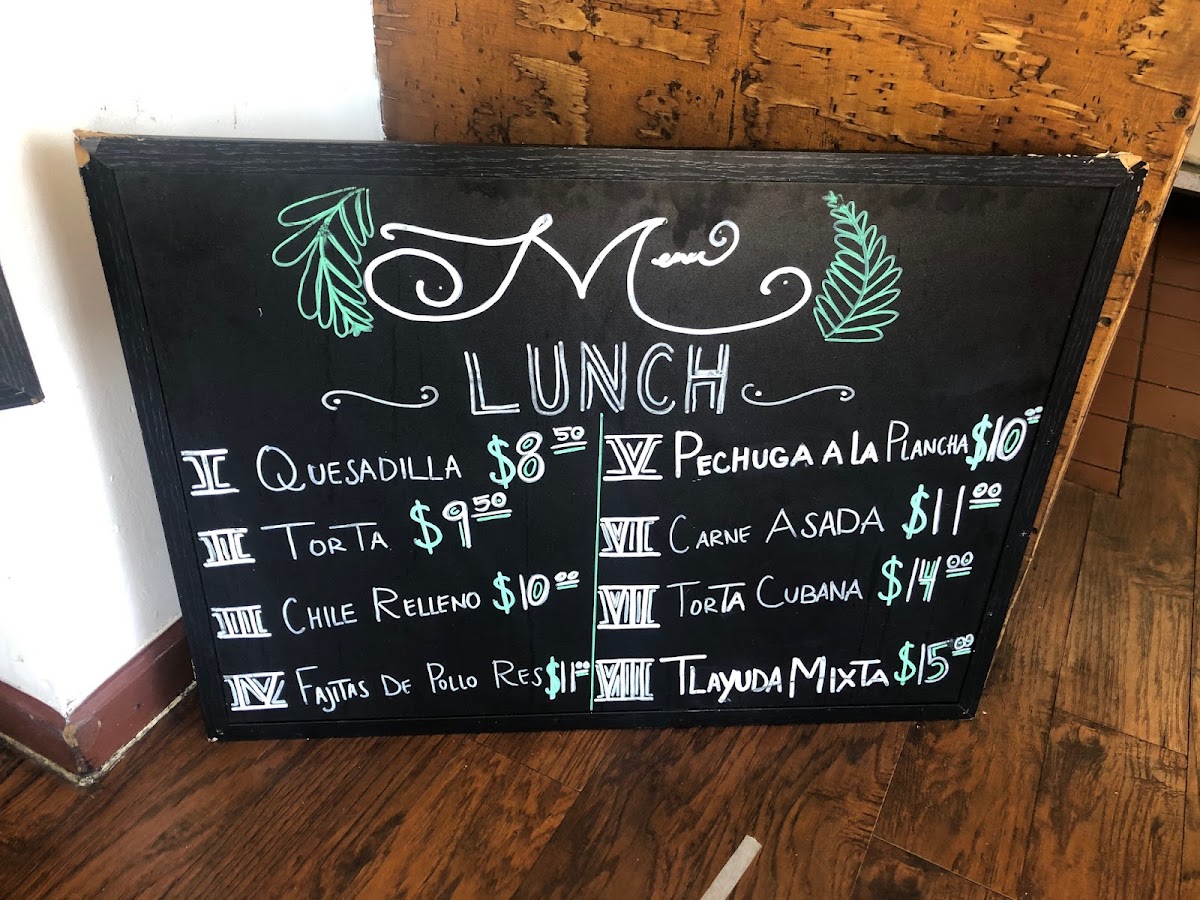 Menu
LUNCH
I QUESADILLA $8.50
II TORTA $9.50
III CHILE RELLENO $10.00
IV FAJITAS DE POLLO RES $11.00
V PECHUGA A LA PLANCHA $10.00
VI CARNE ASADA $11.00
VII TORTA CUBANA $14.00
VIII TLAYUDA MIXTA $15.00